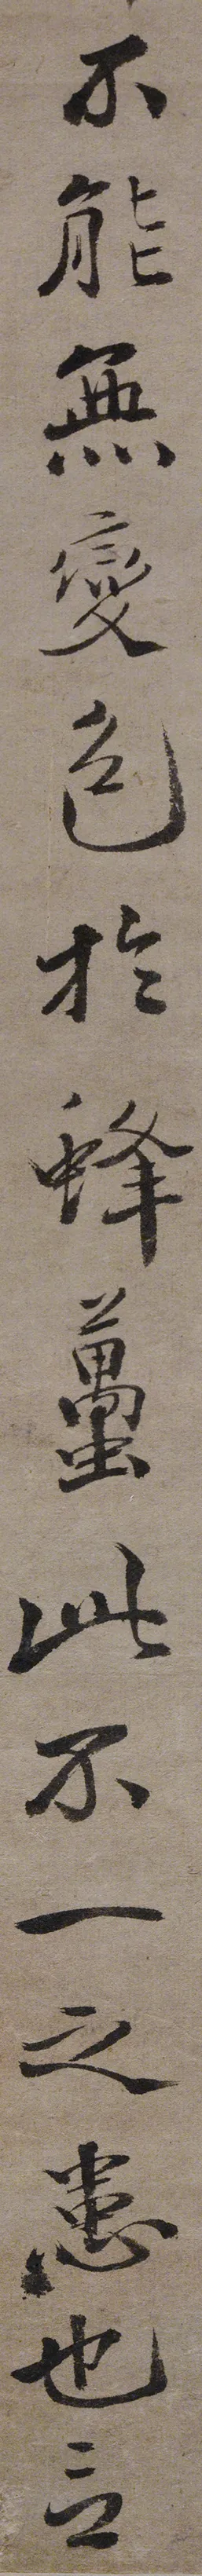 不能無變色於蜂蠆此不一之患也言